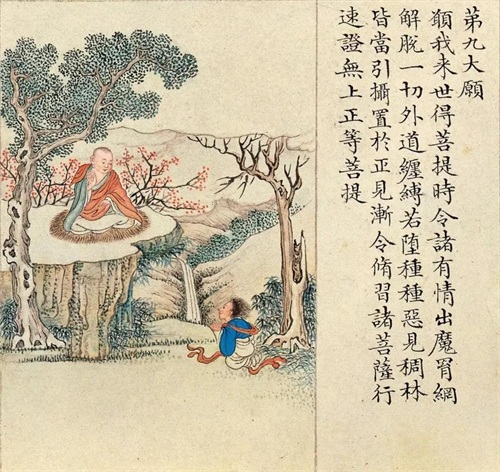 第九大願
願我来世得菩提時令諸有情出魔罥網
解脫一切外道纏縛若墮種種惡見稠林
皆當引攝置於正見漸令脩習諸菩薩行
速證無上正等菩提